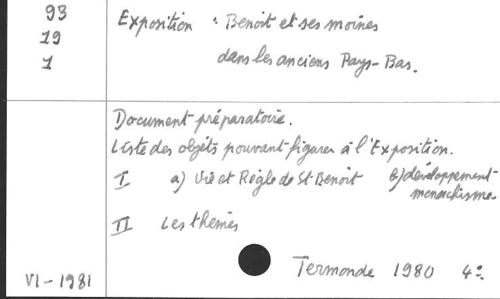 93
19
1
Exposition : Benoit et ses moines
dans les anciens Pays-Bas.
Document préparatoire.
Liste des objets pouvant figurer à l'Exposition.
I a) Vie et Règle de St Benoit b) développement
monachisme
II Les themes
VI - 1981
Termonde 1980 4°